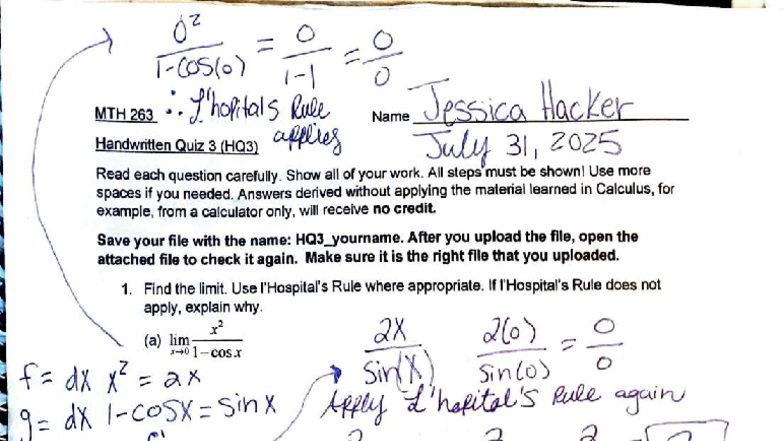 0² / 1-cos(0) = 0 / 1-1 = 0 / 0
MTH 263 ∴ L'hopitals Rule applies
Name Jessica Hacker
Handwritten Quiz 3 (HQ3)
July 31, 2025
Read each question carefully. Show all of your work. All steps must be shown! Use more
spaces if you needed. Answers derived without applying the material learned in Calculus, for
example, from a calculator only, will receive no credit.
Save your file with the name: HQ3_yourname. After you upload the file, open the
attached file to check it again. Make sure it is the right file that you uploaded.
1. Find the limit. Use l'Hospital's Rule where appropriate. If l'Hospital's Rule does not
apply, explain why.
(a) lim x→0 x² / 1-cos x
2x / sin(x) 2(0) / sin(0) = 0 / 0
f = dx x² = 2x
Apply L'hopital's Rule again
g = dx 1-cosx = sin x